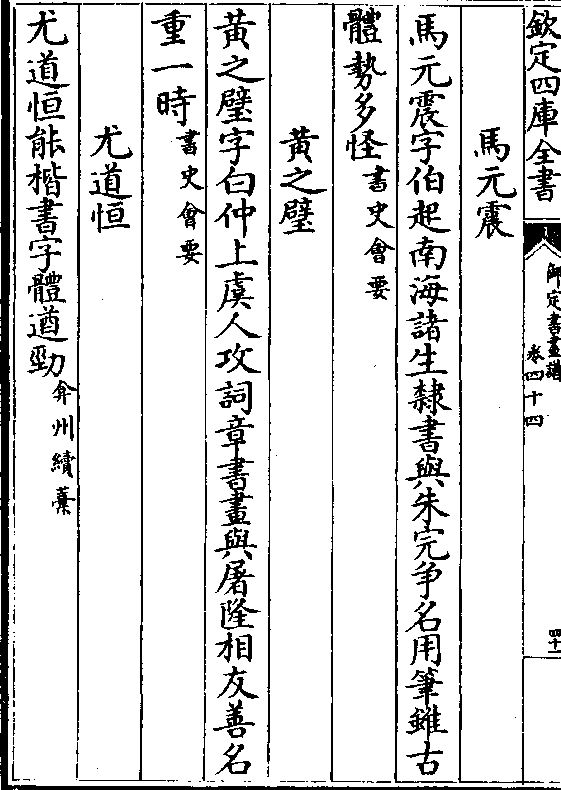 欽定四庫全書
御定書畫譜
卷四十四
四十一
馬元震
馬元震字伯起南海諸生隸書與朱完争名用筆雖古
體勢多怪書史會要
黃之璧
黃之璧字白仲上虞人攻詞章書畫與屠隆相友善名
重一時書史會要
尤道恒
尤道恒能楷書字體遒勁弇州續藁